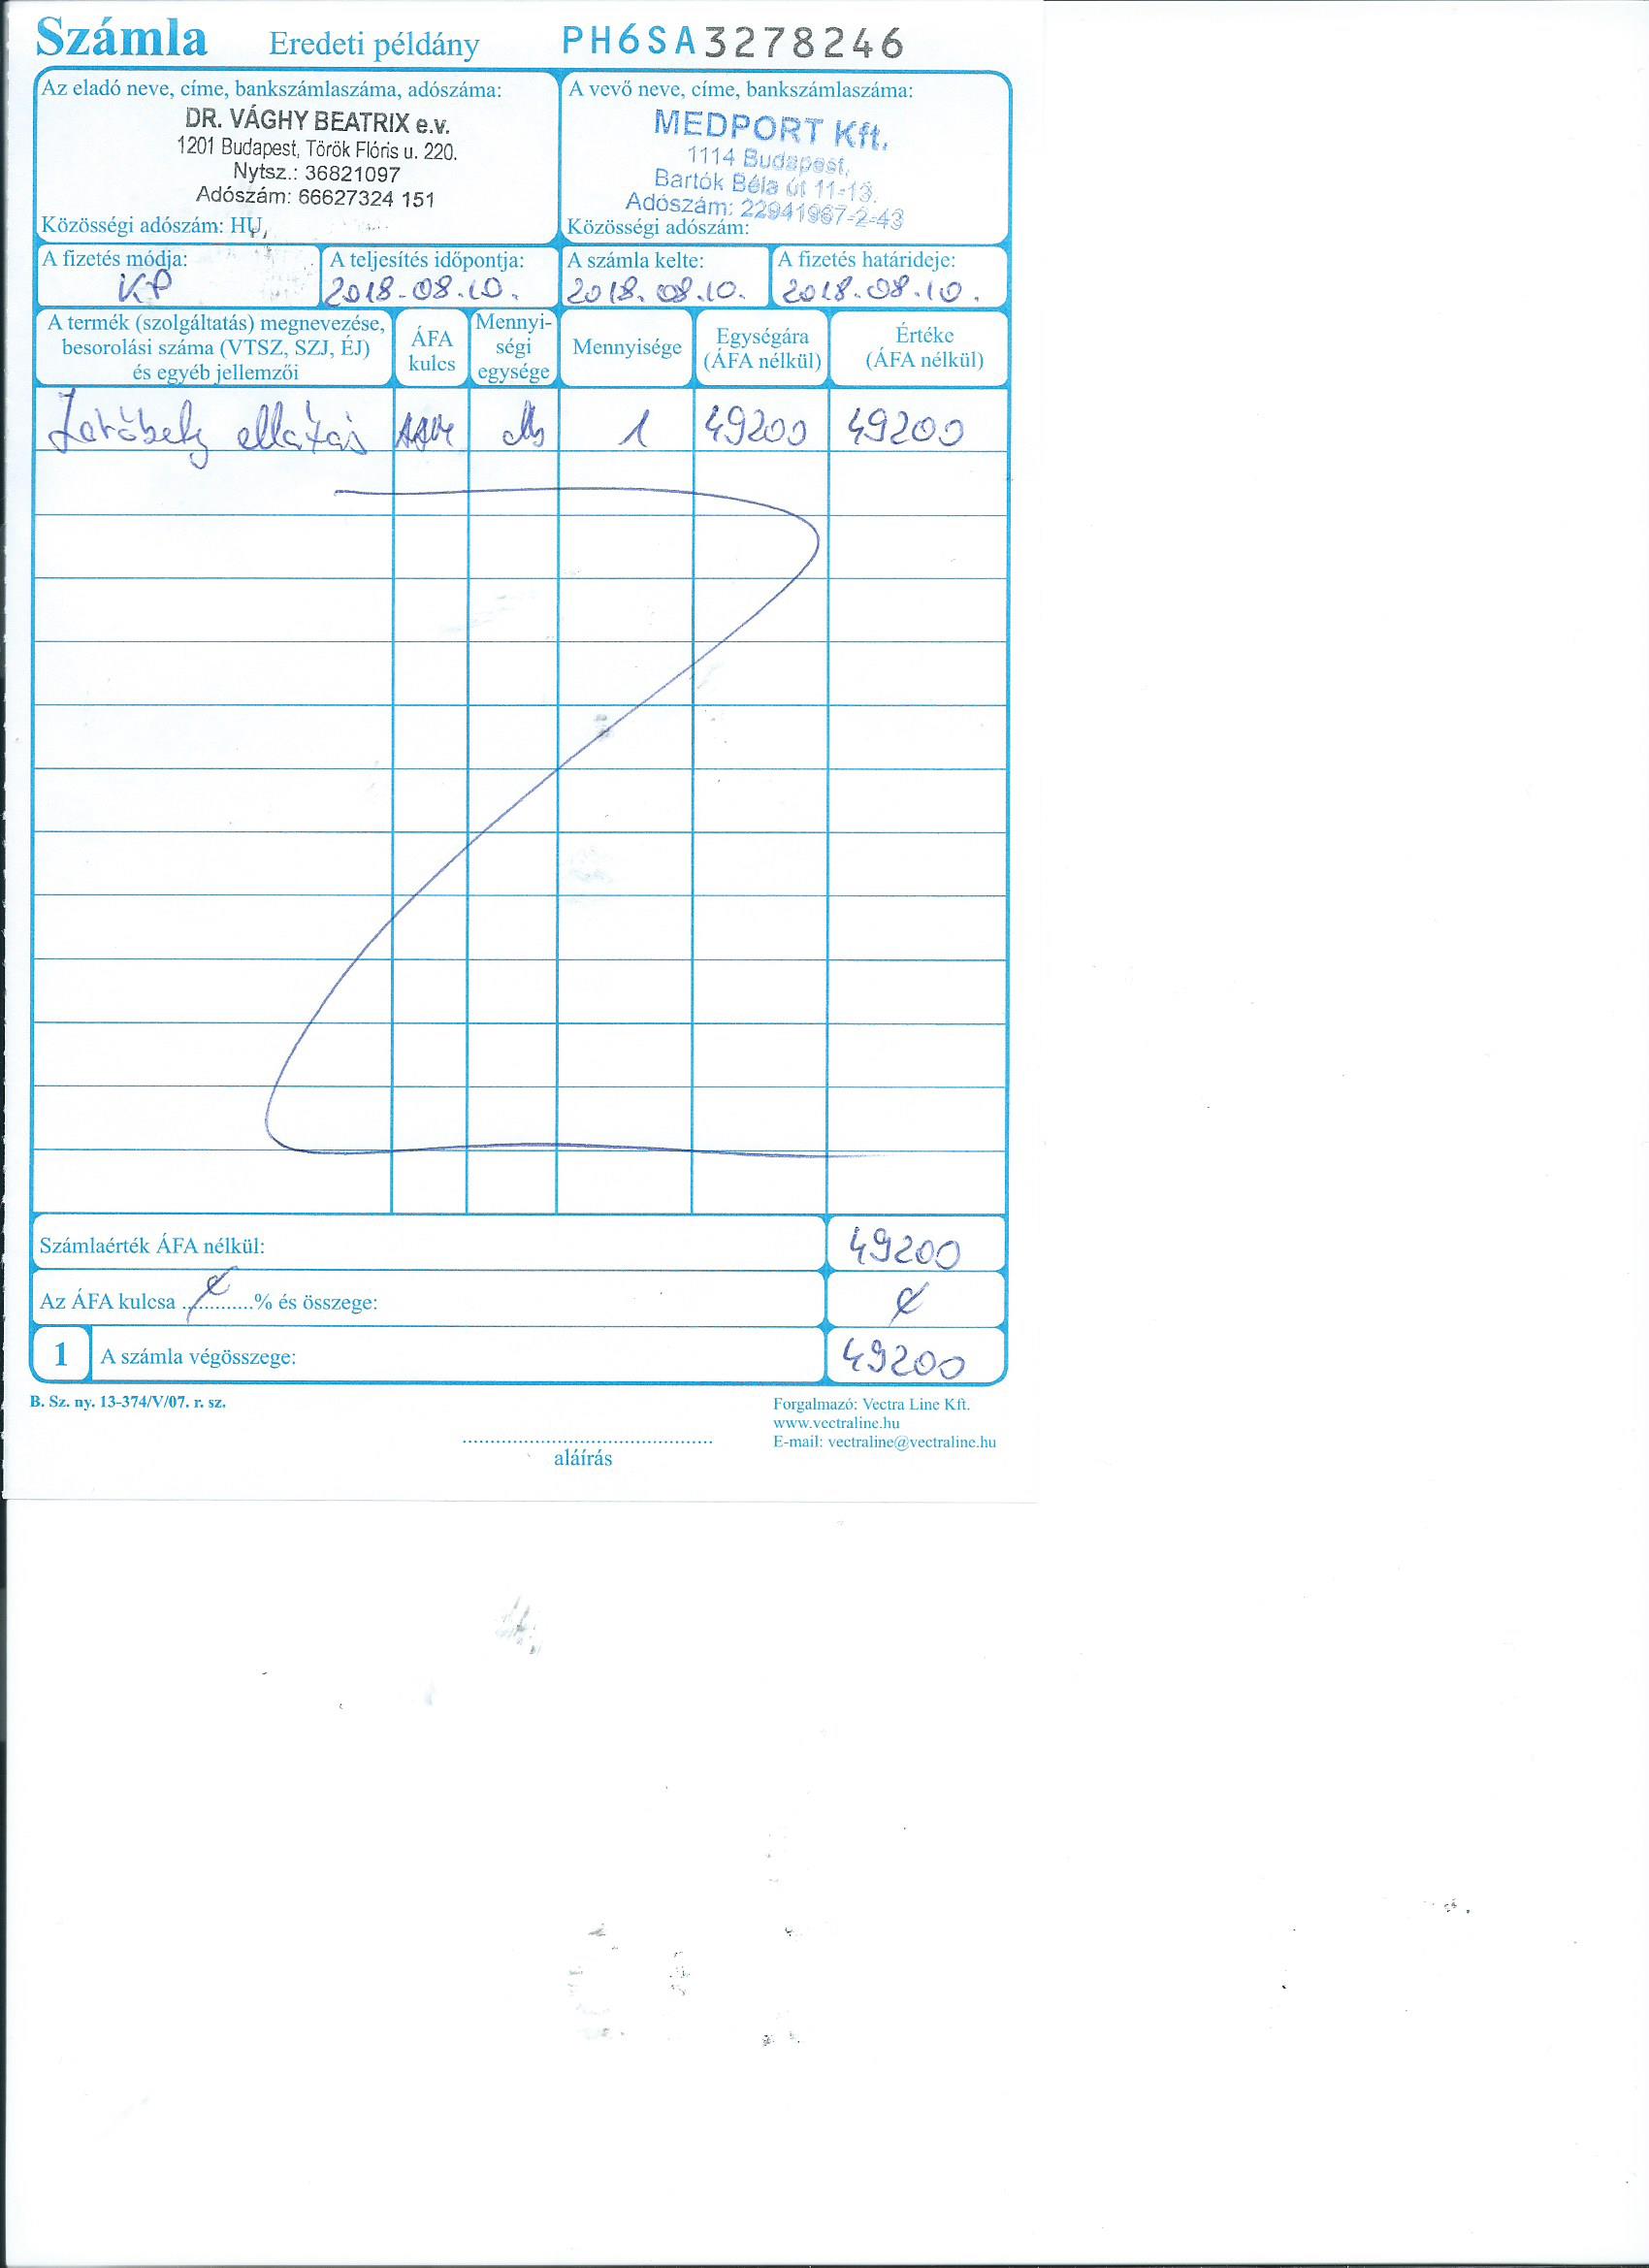 Számla Eredeti példány PH6SA3278246
Az eladó neve, címe, bankszámlaszáma, adószáma:
DR. VÁGHY BEATRIX e.v.
1201 Budapest, Török Flóris u. 220.
Nytsz.: 36821097
Adószám: 66627324 151
Közösségi adószám: HU,
A vevő neve, címe, bankszámlaszáma:
MEDPORT Kft.
1114 Budapest,
Bartók Béla út 11-13.
Adószám: 22941967-2-43
Közösségi adószám:
A fizetés módja:
KP
A teljesítés időpontja:
2018.08.10.
A számla kelte:
2018.08.10.
A fizetés határideje:
2018.08.10.
A termék (szolgáltatás) megnevezése,
besorolási száma (VTSZ, SZJ, ÉJ)
és egyéb jellemzői
ÁFA
kulcs
Mennyi-
ségi
egysége
Mennyisége
Egységára
(ÁFA nélkül)
Értéke
(ÁFA nélkül)
ellátás 1 49200 49200
Számlaérték ÁFA nélkül: 49200
Az ÁFA kulcsa ...........% és összege:
1 A számla végösszege: 49200
B. Sz. ny. 13-374/V/07. r. sz.
aláírás
Forgalmazó: Vectra Line Kft.
www.vectraline.hu
E-mail: vectraline@vectraline.hu